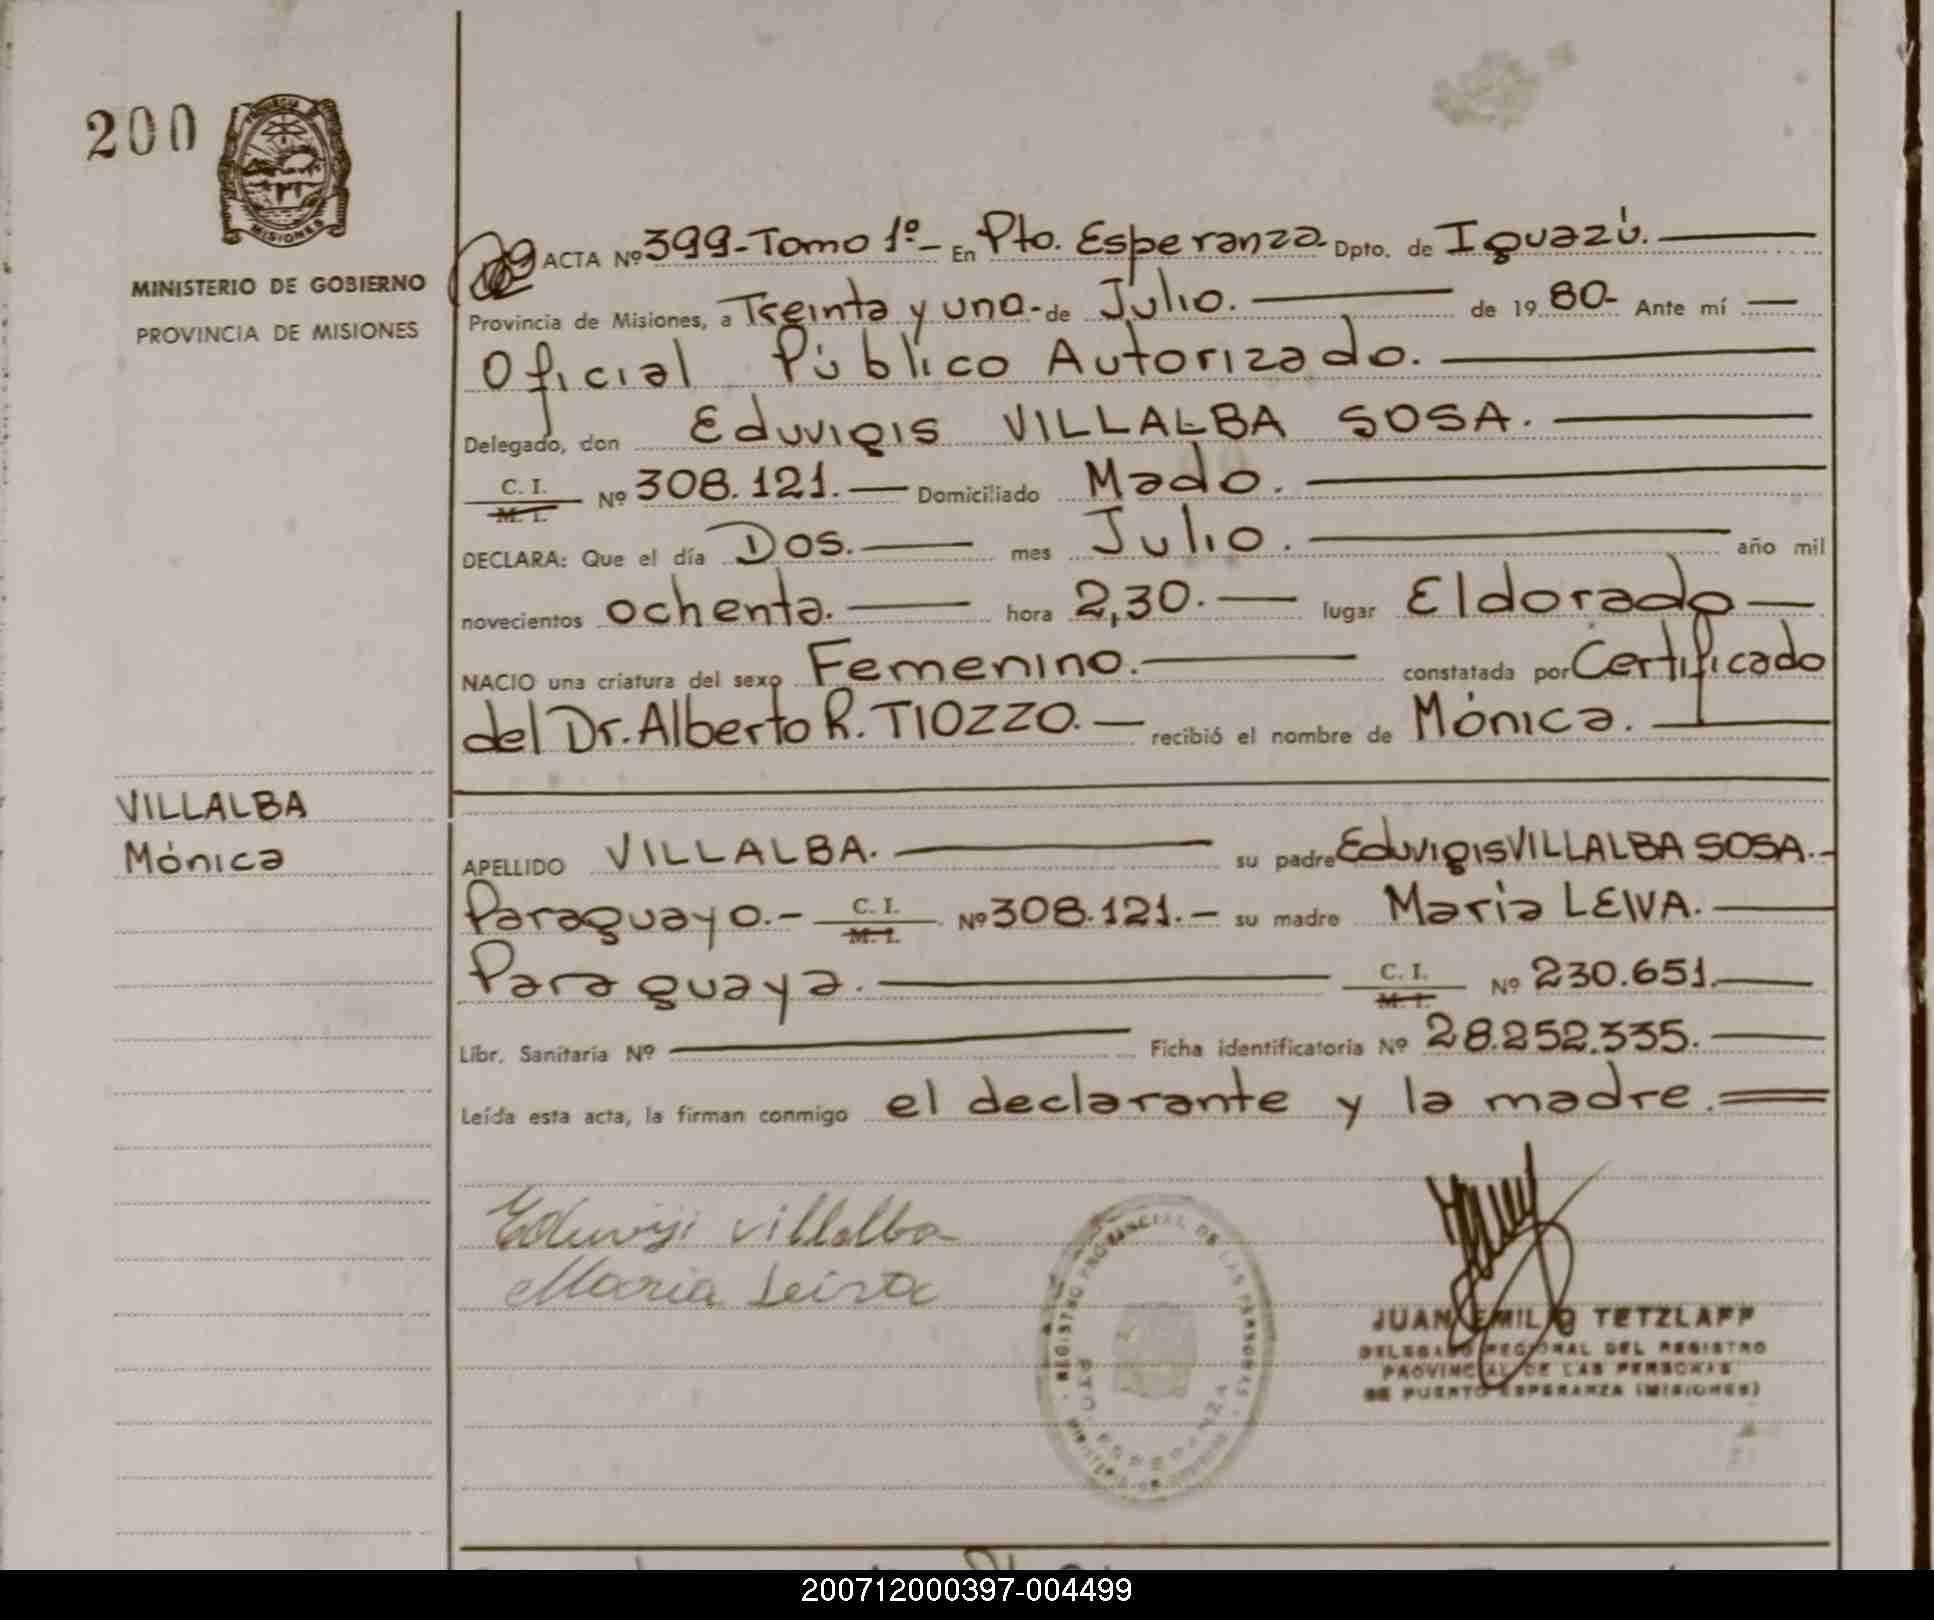 200
PROVINCIA
MISIONES
MINISTERIO DE GOBIERNO
PROVINCIA DE MISIONES
ACTA Nº 399-Tomo 1º- En Pto. Esperanza Dpto. de Iguazú.
Provincia de Misiones, a Treinta y uno-de Julio. de 19 80- Ante mí
Oficial Público Autorizado.
Delegado, don Eduvigis VILLALBA SOSA.
C. I.
M. I.
Nº 308.121. Domiciliado Mado.
DECLARA: Que el día Dos. mes Julio. año mil
novecientos ochenta. hora 2,30. lugar Eldorado
NACIO una criatura del sexo Femenino. constatada por Certificado
del Dr. Alberto R. TIOZZO. recibió el nombre de Mónica.
VILLALBA
Mónica
APELLIDO VILLALBA. su padre Eduvigis VILLALBA SOSA.-
Paraguayo.- C. I.
M. I.
Nº 308.121.- su madre María LEIVA.
Paraguaya. C. I.
M. I.
Nº 230.651.
Libr. Sanitaria Nº Ficha identificatoria Nº 28.252.335.
Leída esta acta, la firman conmigo el declarante y la madre.
Eduvigi villalba
Maria Leiva
REGISTRO PROVINCIAL DE LAS PERSONAS
JUAN EMILIO TETZLAFF
DELEGADO REGIONAL DEL REGISTRO
PROVINCIAL DE LAS PERSONAS
DE PUERTO ESPERANZA (MISIONES)
200712000397-004499